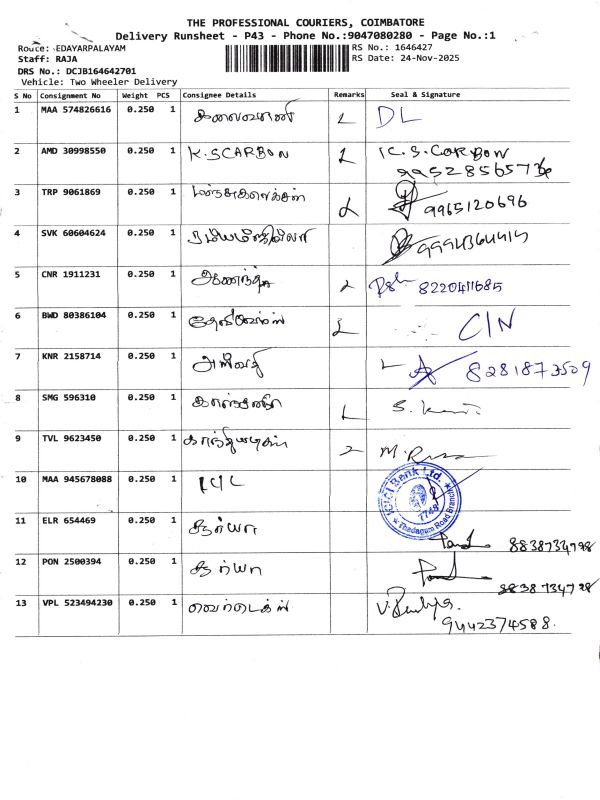 THE PROFESSIONAL COURIERS, COIMBATORE
Delivery Runsheet - P43 - Phone No.:9047080280 - Page No.:1
Route: EDAYARPALAYAM
RS No.: 1646427
Staff: RAJA
RS Date: 24-Nov-2025
DRS No.: DCJB164642701
Vehicle: Two Wheeler Delivery
S No Consignment No Weight PCS Consignee Details Remarks Seal & Signature
1 MAA 574826616 0.250 1 கலைவாணி DL
2 AMD 30998550 0.250 1 K.SCARBON K.S.CARBON
3 TRP 9061869 0.250 1 9965120696
4 SVK 60604624 0.250 1
5 CNR 1911231 0.250 1 8220411685
6 BWD 80386104 0.250 1 C/N
7 KNR 2158714 0.250 1 8281873509
8 SMG 596310 0.250 1
9 TVL 9623450 0.250 1
10 MAA 945678088 0.250 1 ICICI Bank Ltd. 7748 Thadagam Road Branch
11 ELR 654469 0.250 1 சூர்யா 8838734798
12 PON 2500394 0.250 1 சூர்யா 8838734798
13 VPL 523494230 0.250 1 9442374588.